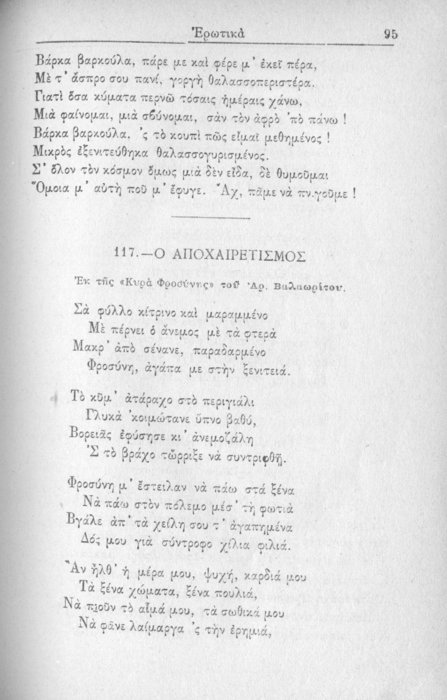 Ἐρωτικὰ 95
Βάρκα βαρκούλα, πάρε με καὶ φέρε μ' ἐκεῖ πέρα,
Μὲ τ' ἄσπρο σου πανί, γοργὴ θαλασσοπεριστέρα.
Γιατὶ ὅσα κύματα περνῶ τόσαις ἡμέραις χάνω,
Μιὰ φαίνομαι, μιὰ σβύνομαι, σὰν τὸν ἀφρὸ 'πὸ πάνω !
Βάρκα βαρκούλα, 'ς τὸ κουπὶ πῶς εἶμαι μεθημένος !
Μικρὸς ἐξενιτεύθηκα θαλασσογυρισμένος.
Σ' ὅλον τὸν κόσμον ὅμως μιὰ δὲν εἶδα, δὲ θυμοῦμαι
Ὅμοια μ' αὐτὴ ποῦ μ' ἔφυγε. Ἄχ, πᾶμε νὰ πν.γοῦμε !
117.—Ο ΑΠΟΧΑΙΡΕΤΙΣΜΟΣ
Ἐκ τῆς «Κυρὰ Φροσύνης» τοῦ Ἀρ. Βαλαωρίτου.
Σὰ φύλλο κίτρινο καὶ μαραμμένο
Μὲ πέρνει ὁ ἄνεμος μὲ τὰ φτερὰ
Μακρ' ἀπὸ σένανε, παραδαρμένο
Φροσύνη, ἀγάπα με στὴν ξενιτειά.
Τὸ κῦμ' ἀτάραχο στὸ περιγιάλι
Γλυκὰ 'κοιμώτανε ὕπνο βαθύ,
Βορειᾶς ἐφύσησε κι' ἀνεμοζάλη
Σ τὸ βράχο τὤρριξε νὰ συντριφθῇ.
Φροσύνη μ' ἔστειλαν νὰ πάω στά ξένα
Νὰ πάω στον πόλεμο μέσ' τὴ φωτιὰ
Βγάλε ἀπ' τὰ χείλη σου τ' ἀγαπημένα
Δός μου γιὰ σύντροφο χίλια φιλιά.
Ἂν ἦλθ' ἡ μέρα μου, ψυχή, καρδιά μου
Τὰ ξένα χώματα, ξένα πουλιά,
Νὰ πιοῦν τὸ αἷμά μου, τὰ σωθικά μου
Νὰ φᾶνε λαίμαργα 'ς τὴν ἐρημιά,